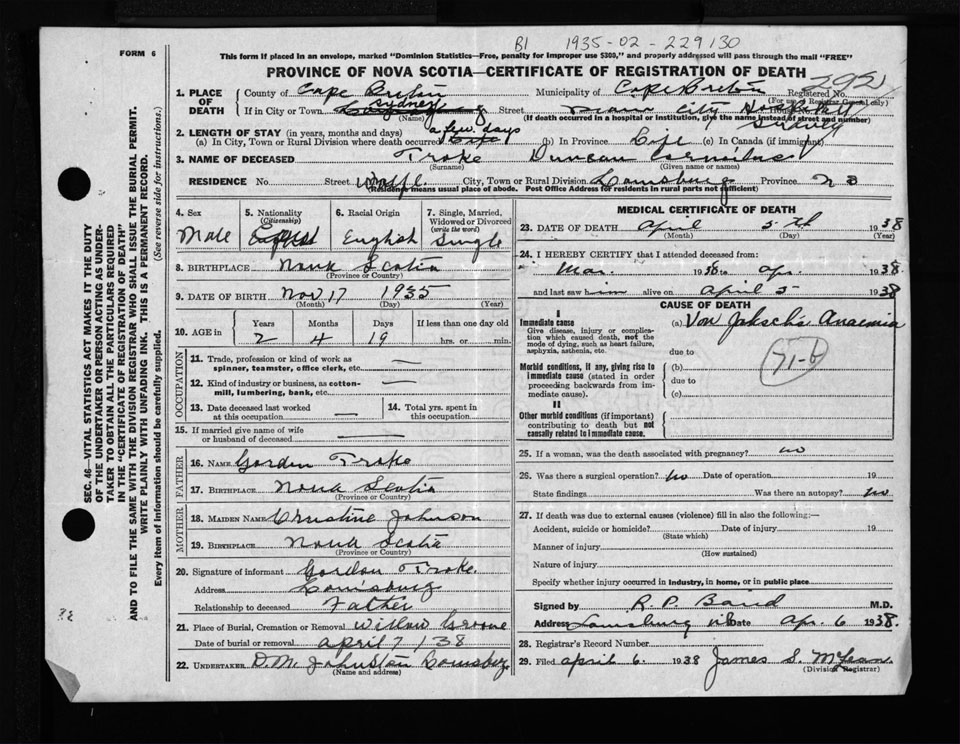 B1 1935-02-229130
FORM 6
This form if placed in an envelope, marked "Dominion Statistics—Free, penalty for improper use $300," and properly addressed will pass through the mail "FREE"
PROVINCE OF NOVA SCOTIA—CERTIFICATE OF REGISTRATION OF DEATH
SEC. 46—VITAL STATISTICS ACT MAKES IT THE DUTY
OF THE UNDERTAKER OR PERSON ACTING AS UNDER-
TAKER TO OBTAIN ALL THE PARTICULARS REQUIRED
IN THE "CERTIFICATE OF REGISTRATION OF DEATH"
AND TO FILE THE SAME WITH THE DIVISION REGISTRAR WHO SHALL ISSUE THE BURIAL PERMIT.
WRITE PLAINLY WITH UNFADING INK. THIS IS A PERMANENT RECORD.
Every item of information should be carefully supplied. (See reverse side for instructions.)
1. PLACE OF DEATH County of Cape Breton Municipality of Cape Breton Registered No.
(For use of Registrar General only)
If in City or Town Sydney Street City Hospital
(Name) (If death occurred in a hospital or institution, give the name instead of street and number)
Sydney
2. LENGTH OF STAY (in years, months and days) a few days
(a) In City, Town or Rural Division where death occurred (b) In Province Life (c) In Canada (if immigrant)
3. NAME OF DECEASED Troke Duncan
(Surname) (Given name or names)
RESIDENCE No. Street Wolfe City, Town or Rural Division Louisburg Province N S
(Residence means usual place of abode. Post Office Address for residents in rural parts not sufficient)
4. Sex Male
5. Nationality (Citizenship)
6. Racial Origin English
7. Single, Married, Widowed or Divorced (write the word) Single
8. BIRTHPLACE Nova Scotia
(Province or Country)
9. DATE OF BIRTH Nov 17 1935
(Month) (Day) (Year)
10. AGE in Years Months Days If less than one day old
2 4 19 hrs. or min.
OCCUPATION
11. Trade, profession or kind of work as spinner, teamster, office clerk, etc. —
12. Kind of industry or business, as cotton-mill, lumbering, bank, etc. —
13. Date deceased last worked at this occupation — 14. Total yrs. spent in this occupation
15. If married give name of wife or husband of deceased —
FATHER
16. NAME Gordon Troke
17. BIRTHPLACE Nova Scotia
(Province or Country)
MOTHER
18. MAIDEN NAME Christine Johnson
19. BIRTHPLACE Nova Scotia
(Province or Country)
20. Signature of informant Gordon Troke
Address Louisburg
Relationship to deceased Father
21. Place of Burial, Cremation or Removal Willow Grove
Date of burial or removal april 7 / 38
22. UNDERTAKER D.M. Johnston Louisbg.
(Name and address)
MEDICAL CERTIFICATE OF DEATH
23. DATE OF DEATH April 5th 1938
(Month) (Day) (Year)
24. I HEREBY CERTIFY that I attended deceased from:
Mar. 1938 to Apr. 1938
and last saw him alive on April 5 1938
CAUSE OF DEATH
I
Immediate cause
Give disease, injury or complication which caused death, not the mode of dying, such as heart failure, asphyxia, asthenia, etc.
(a) Von Jaksch's Anaemia
71-b
due to
Morbid conditions, if any, giving rise to immediate cause (stated in order proceeding backwards from immediate cause).
(b)
due to
(c)
II
Other morbid conditions (if important) contributing to death but not causally related to immediate cause.
25. If a woman, was the death associated with pregnancy? no
26. Was there a surgical operation? no Date of operation 19
State findings Was there an autopsy? no
27. If death was due to external causes (violence) fill in also the following:—
Accident, suicide or homicide? Date of injury 19
(State which)
Manner of injury
(How sustained)
Nature of injury
Specify whether injury occurred in industry, in home, or in public place
Signed by R. P. Baird M.D.
Address Louisburg NS Date Apr. 6 1938.
28. Registrar's Record Number
29. Filed april 6. 1938 James S. McLean.
(Division Registrar)